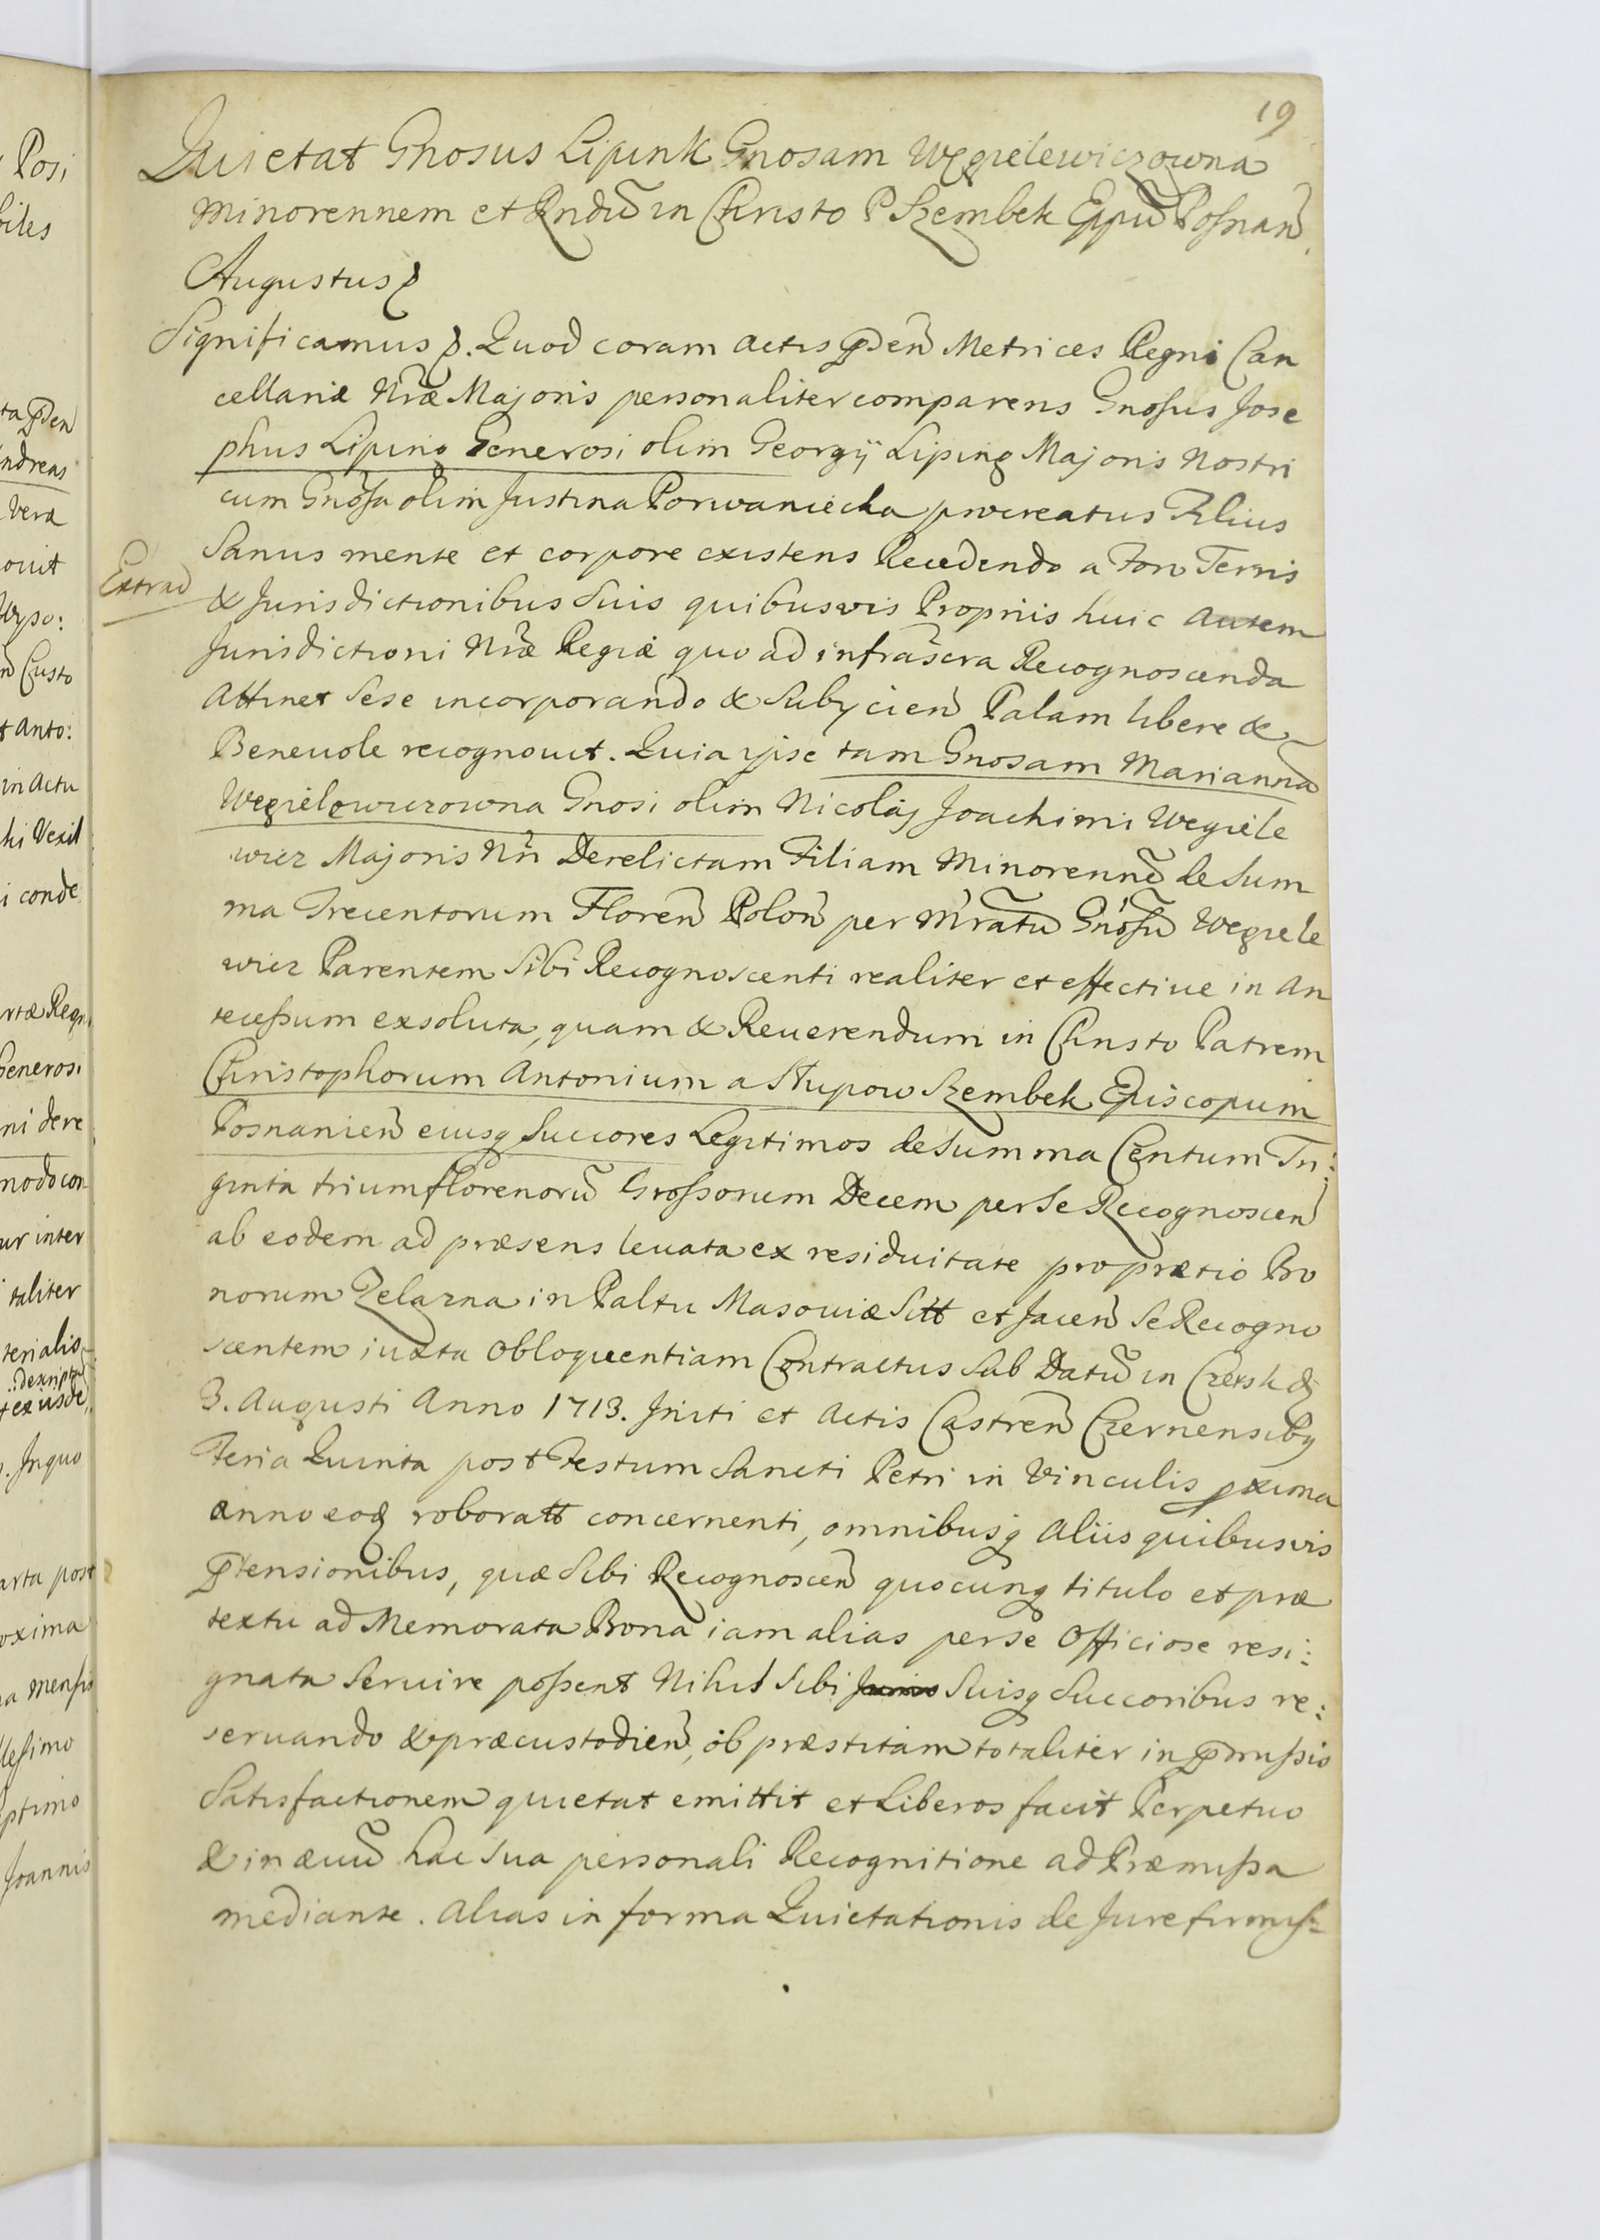 19
Posi
biles
ta pden
ndreas
Vera
ouit
Wyso:
Custo
t Anto:
in Actu
ki Vexil
i conde
rtæ Regn
Generosi
ni dere
modo con
ur inter
taliter
terialis
descripta
t ex usde
. Inquo
arta post
oxima
na mensis
llesimo
ptimo
Joannis
Quietat Gnosus Lipink Gnosam Węgielewiczowna
minorennem et Rndũ in Christo P Szembek Eppũ Poſnan̄
Augustus
Significamus. Quod coram Actis pden̄ Metrices Regni Can
cellariæ Nr̄æ Majoris personaliter comparens Gnosus Jose
phus Liping Generosi olim Georgij Liping Majoris Nostri
cum Gnosa olim Justina Porwaniecka procreatus Filius
Sanus mente et corpore existens Recedendo a Foro Terris
Extrad
& Jurisdictionibus Suis quibusvis Propriis huic autem
Jurisdictioni Nr̄æ Regiæ quo ad infrascra Recognoscenda
Attinet Sese incorporando & Subycien̄ Palam libere &
Beneuole recognouit. Quia ipse tam Gnosam Marianna
Węgielowiczowna Gnosi olim Nicolaj Joachimi Węgiele
wicz Majoris Nr̄i Derelictam Filiam Minorennẽ de Sum
ma Trecentorum Floren̄ Polon̄ per Mratũ Gnosũ Węgiele
wicz Parentem Sibi Recognoscenti realiter et effectiue in An
teceſsum exsoluta, quam & Reuerendum in Christo Patrem
Christophorum Antonium a Słupow Szembek Episcopum
Posnanien̄ eiusq Succores Legitimos de Summa Centum Tri:
ginta trium florenorũ Groſsorum Decem per Se Recognoscen̄
ab eodem ad præsens leuata ex residuitate pro prætio Bo
norum Zelazna in Paltu Masouiæ Sitt et Jacen̄ Se Recogno
scentem iuxta Obloquentiam Contractus Sub Datũ in Czersk d
3. Augusti Anno 1713. Initi et Actis Castren̄ Czernensibg
Feria Quinta post Festum Sancti Petri in Vinculis pxima
anno eod roboratt concernenti, omnibusq Aliis quibusvis
ptensionibus, quæ Sibi Recognoscen̄ quocunq titulo et præ
textu ad Memorata Bona iam alias per se Officiose resi:
gnata Seruire poſsent Nihil Sibi Suisq Succoribus re:
seruando & præcustodien̄, ob præstitam totaliter in pmiſsis
Satisfactionem quietat emittit et Liberos facit Perpetuo
& in æuũ hac Sua personali Recognitione ad Præmiſsa
mediante. Alias in forma Quietationis de Jure firmiſ=